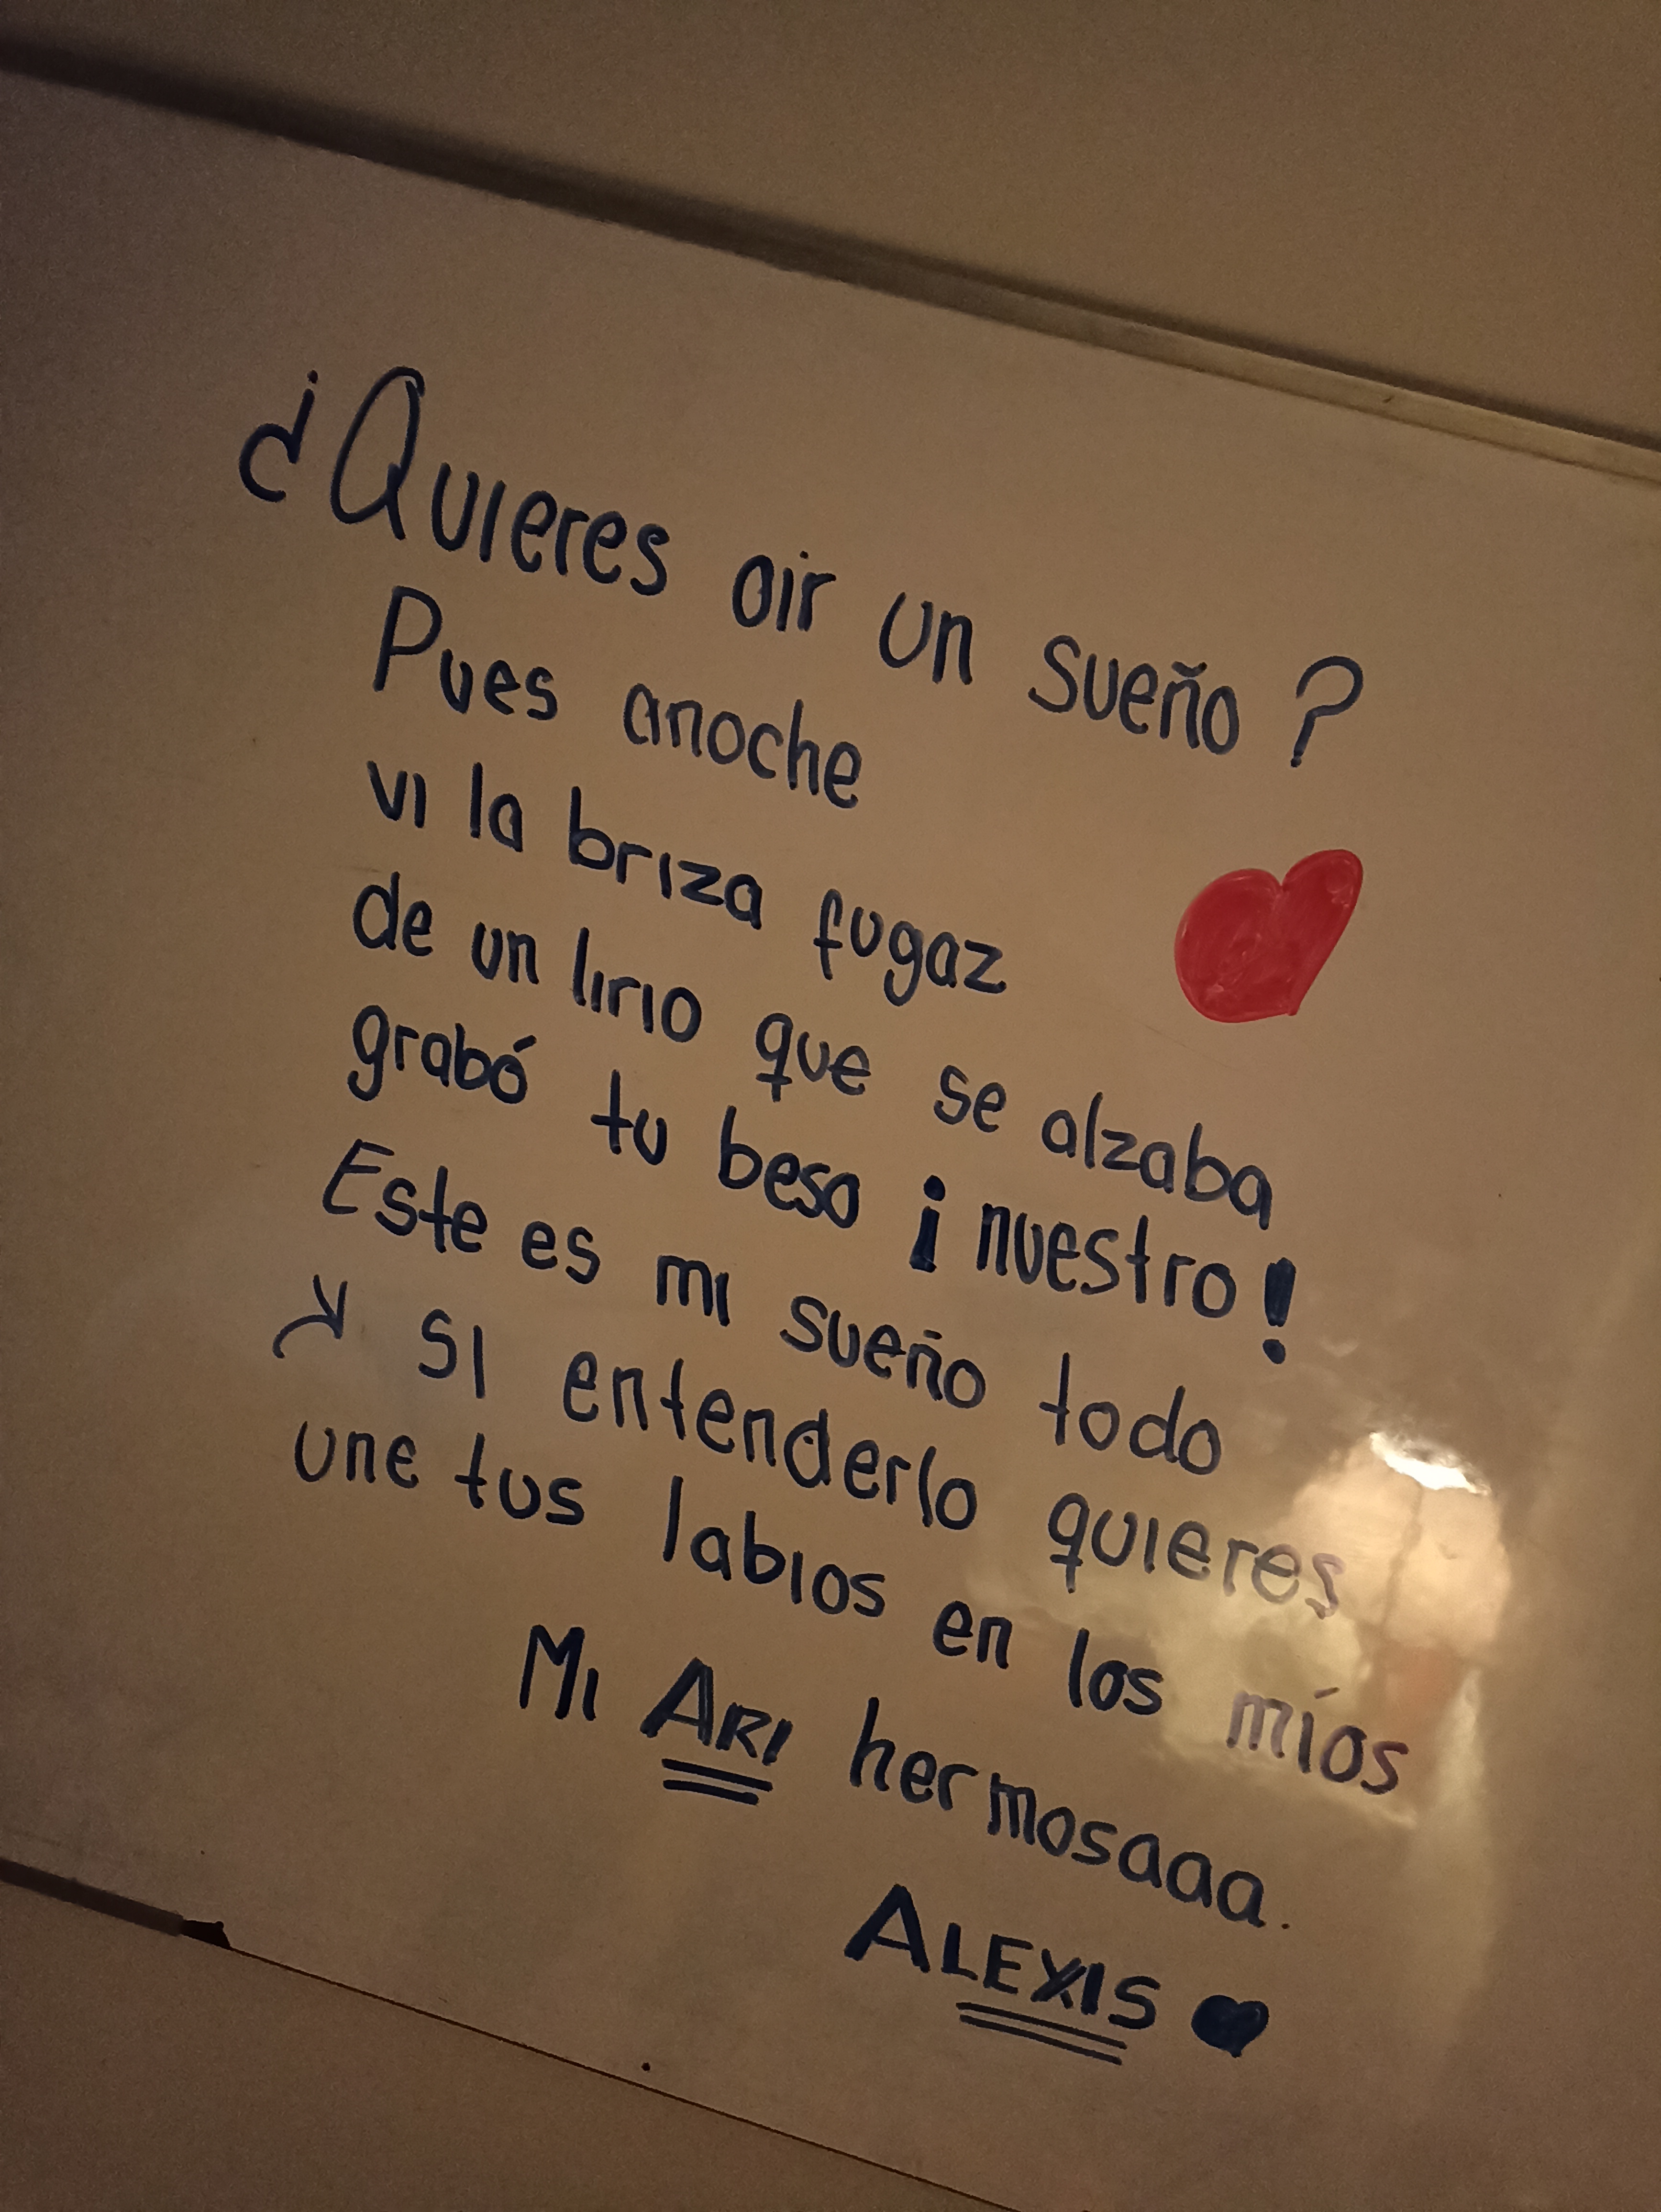 ¿Quieres oir un sueño?
Pues anoche
vi la briza fugaz
de un lirio que se alzaba
grabó tu beso ¡nuestro!
Este es mi sueño todo
si entenderlo quieres
une tus labios en los míos
Mi Ari hermosaaa.
ALEXIS